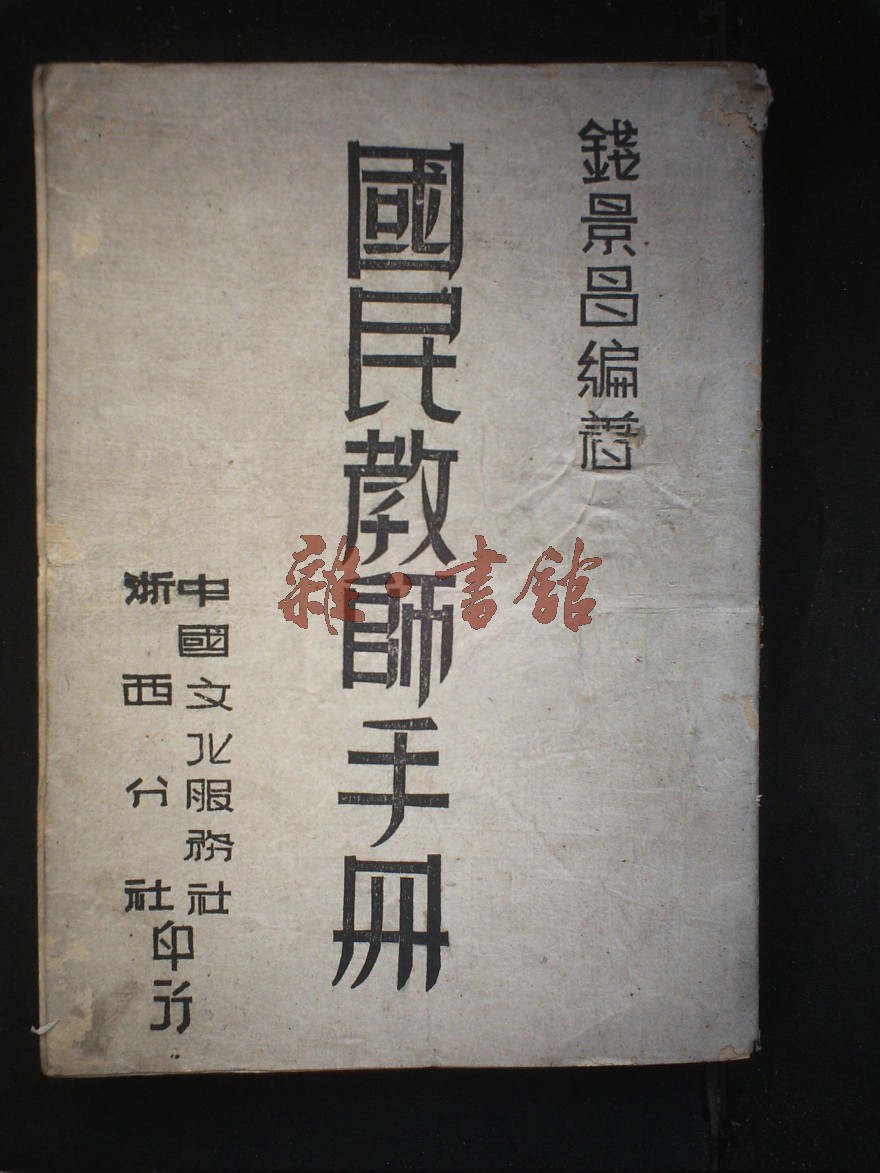 錢景昌編著
國民教師手册
中國文化服務社
浙西分社
印行
雜·書館